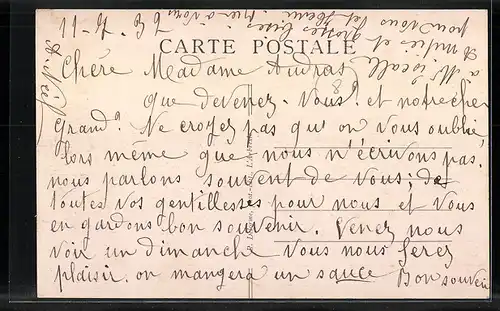 11-7. 32
CARTE POSTALE
Chère Madame Audras
que devenez-vous? et notre cher
Grand? Ne croyez pas qu'on vous oublie
lors même que nous n'écrivons pas.
nous parlons souvent de vous; des
toutes vos gentillesses pour nous et vous
en gardons bon souvenir. Venez nous
voir un dimanche vous nous ferez
plaisir. on mangera un sauce Bon souvenir
Amitiés et grosses bises
pour vous